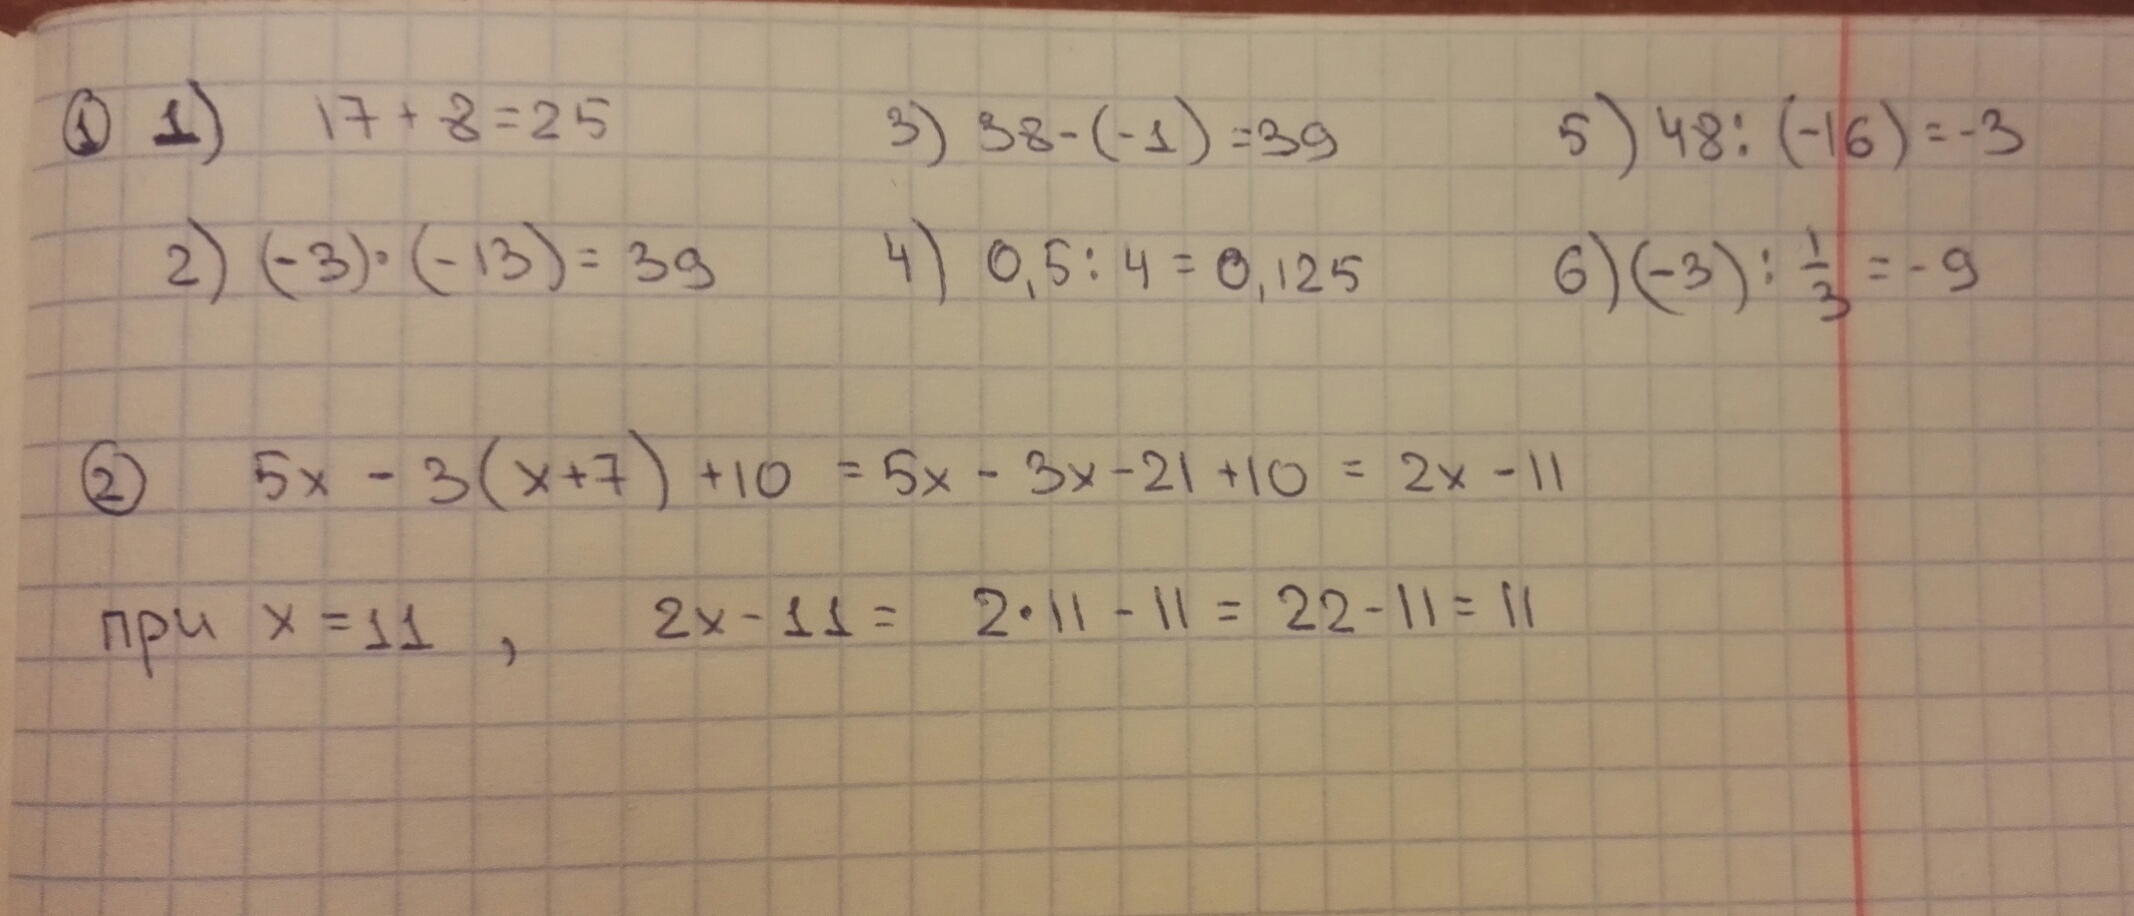 ① 1) 17 + 8 = 25 3) 38 - (-1) = 39 5) 48 : (-16) = -3
2) (-3) · (-13) = 39 4) 0,5 : 4 = 0,125 6) (-3) : 1/3 = -9
② 5x - 3(x+7) + 10 = 5x - 3x - 21 + 10 = 2x - 11
при x = 11 , 2x - 11 = 2·11 - 11 = 22 - 11 = 11